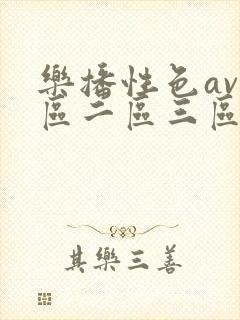 樂播性色av
區二區三區
其樂三善